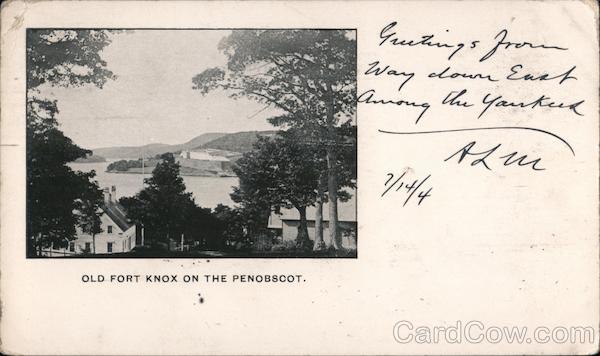 Greetings from
Way down East
Among the Yankees
ALM
7/14/4
OLD FORT KNOX ON THE PENOBSCOT.
CardCow.com